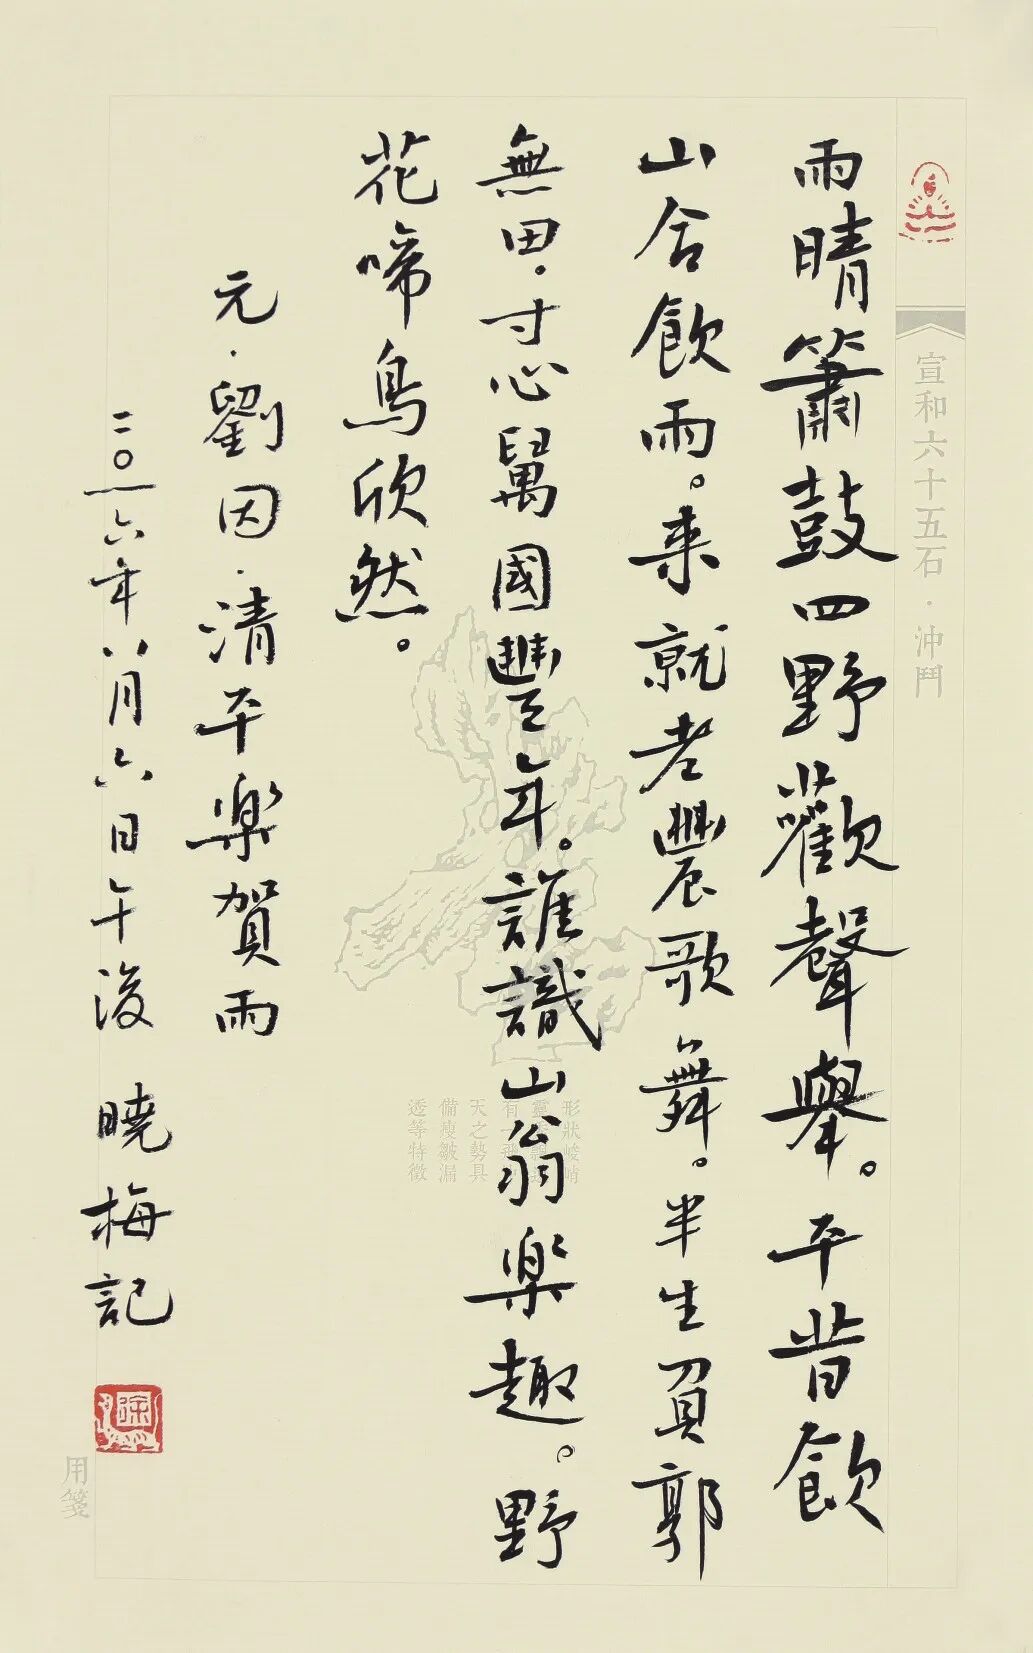 宣和六十五石·沖鬥
雨晴簫鼓四野歡聲舉。平昔飲
山舍飲雨。来就老農歌舞。半生負郭
無田.寸心萬國豐年。誰識山翁樂趣。野
花啼鳥欣然。
元.劉因.清平樂賀雨
二〇一六年八月六日午後 曉梅記
形狀峻峭
天之勢具
備瘦皺漏
透等特徵
用箋